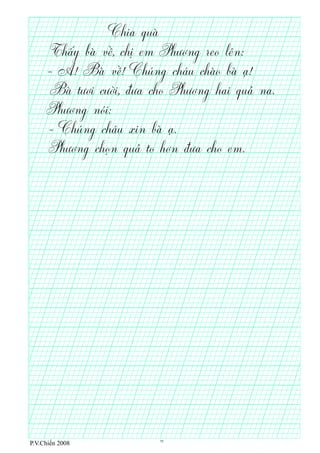 Chia quà
Thấy bà về, chị em Phương reo lên:
- A! Bà về! Chúng cháu chào bà ạ!
Bà tươi cười, đưa cho Phương hai quả na.
Phương nói:
- Chúng cháu xin bà ạ.
Phương chọn quả to hơn đưa cho em.
P.V.Chiến 2008